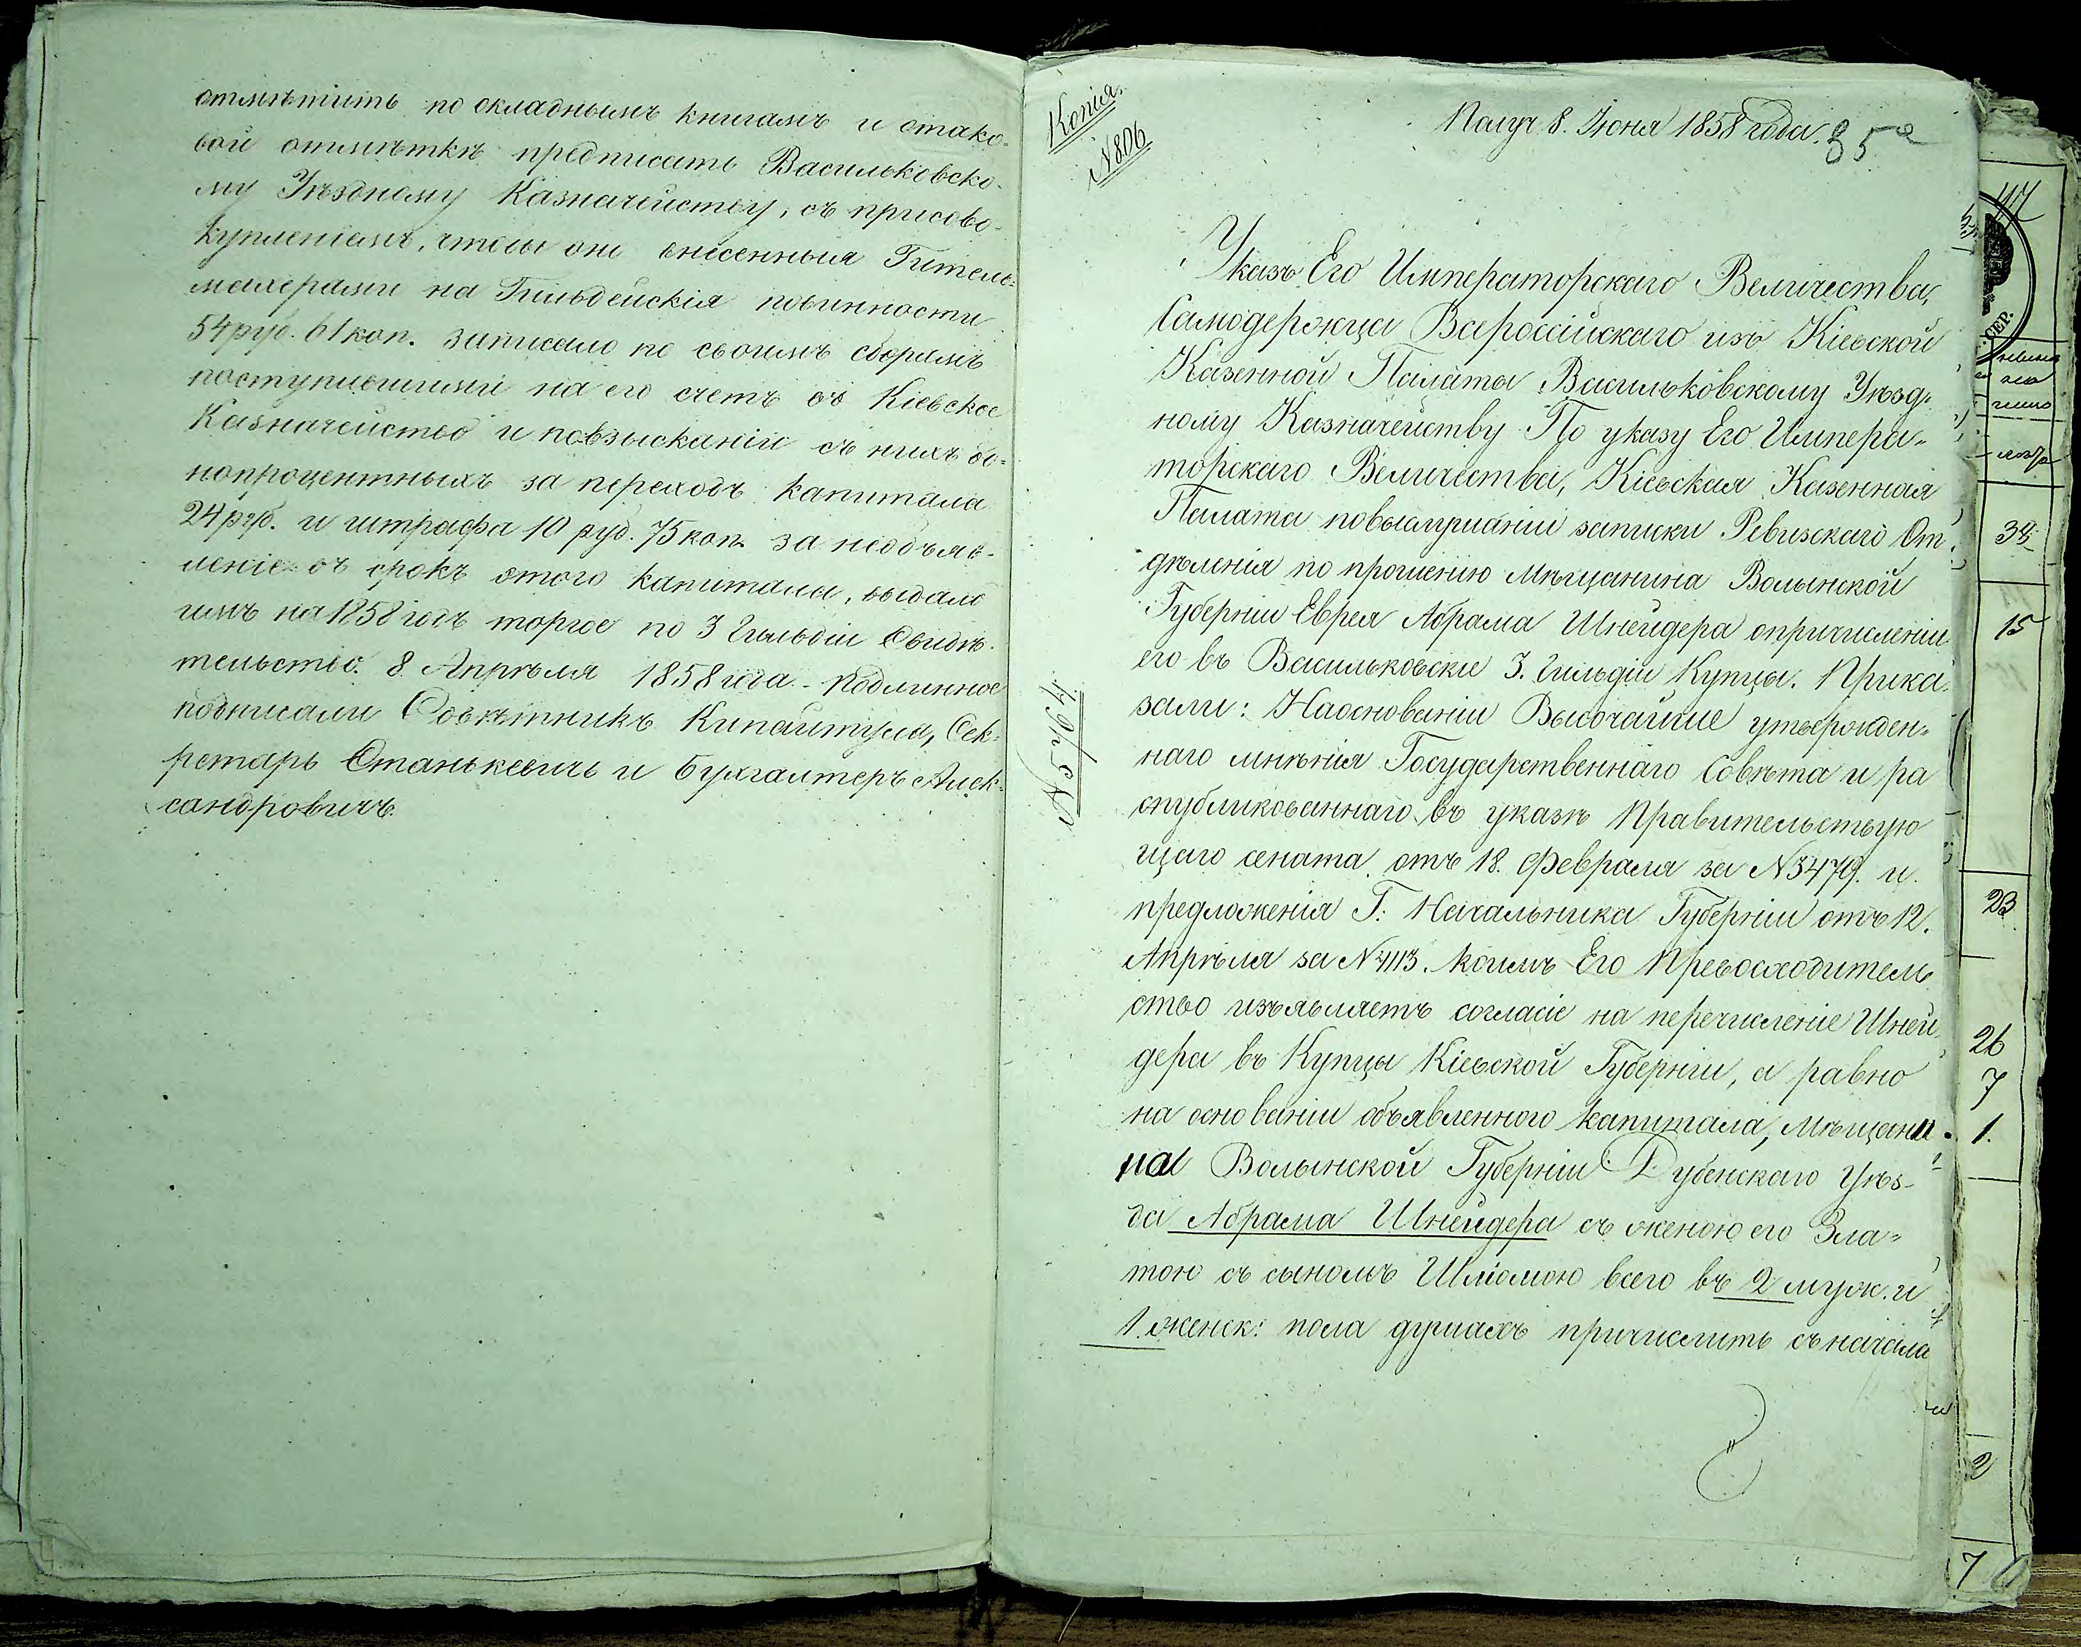 отмѣтить по окладнымъ книгамъ и отако-
вой отмѣткѣ предписать Васильковско-
му Уѣздному Казначейству, съ присово-
купленіемъ, чтобы оно внесенныя Гитель-
махерами на Гильдейскія повинности
54 руб. 61 коп. записало по своимъ сборамъ
поступившими на его счетъ въ Кіевское
Казначейство и повзысканіи съ нихъ бо-
нопроцентныхъ за переходъ капитала
24 руб. и штрафа 10 руб. 75 коп. за необъяв-
леніе въ срокъ этого капитала, выдало
имъ на 1858 годъ торгов по 3 Гильдіи Свидѣ-
тельство. 8 Апрѣля 1858 года. Подлинное
подписали Совѣтникъ Сек-
ретарь Станькевичъ и Бухгалтеръ Алек-
сандровичъ.
Копія.
N 806
Получ 8. Іюня 1858 года.
35
Указъ Его Императорскаго Величества,
Самодержца Всероссійскаго изъ Кіевской
Казенной Палаты Васильковскому Уѣзд-
ному Казначейству. По указу Его Импера-
торскаго Величества, Кіевская Казенная
Палата повыслушаніи записки Ревизскаго От
дѣленія по прошенію мѣщанина Волынской
Губерніи Еврея Абрама Шнейдера опричисленіи
его въ Васильковскіе 3. Гильдіи Купцы. Прика-
зали: Наоснованіи Высочайше утвержден-
наго мнѣнія Государственнаго Совѣта и ра
спубликованнаго въ указѣ Правительствую
щаго сената отъ 18. Февраля за N 3479. и
предложенія Г: Начальника Губерніи отъ 12.
Апрѣля за N 4113. коимъ Его Превосходитель
ство изъявляетъ согласіе на перечисленіе Шней
дера въ Купцы Кіевской Губерніи, а равно
на основаніи объявленного капитала, мѣщани
на Волынской Губерніи Дубенскаго Уѣз-
да Абрама Шнейдера съ женою его Зла-
тою съ сыномъ Шліомою всего въ 2 муж. и
1. женск: пола душахъ причислить съ начала
47
34
15
23
26
7
1.
2
7